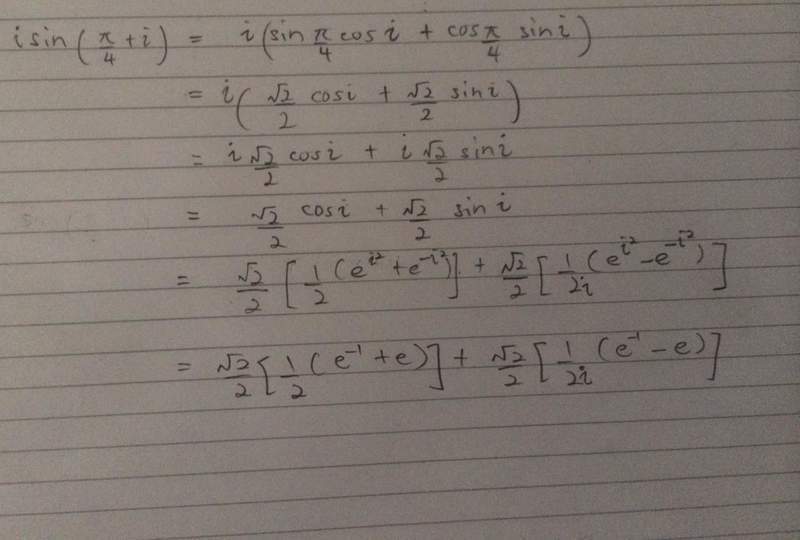 i sin (π/4 + i) = i (sin π/4 cos i + cos π/4 sin i)
= i (√2/2 cos i + √2/2 sin i)
= i √2/2 cos i + i √2/2 sin i
= √2/2 cos i + √2/2 sin i
= √2/2 [1/2 (e^{i²} + e^{-i²})] + √2/2 [1/2i (e^{i²} - e^{-i²})]
= √2/2 [1/2 (e^{-1} + e)] + √2/2 [1/2i (e^{-1} - e)]